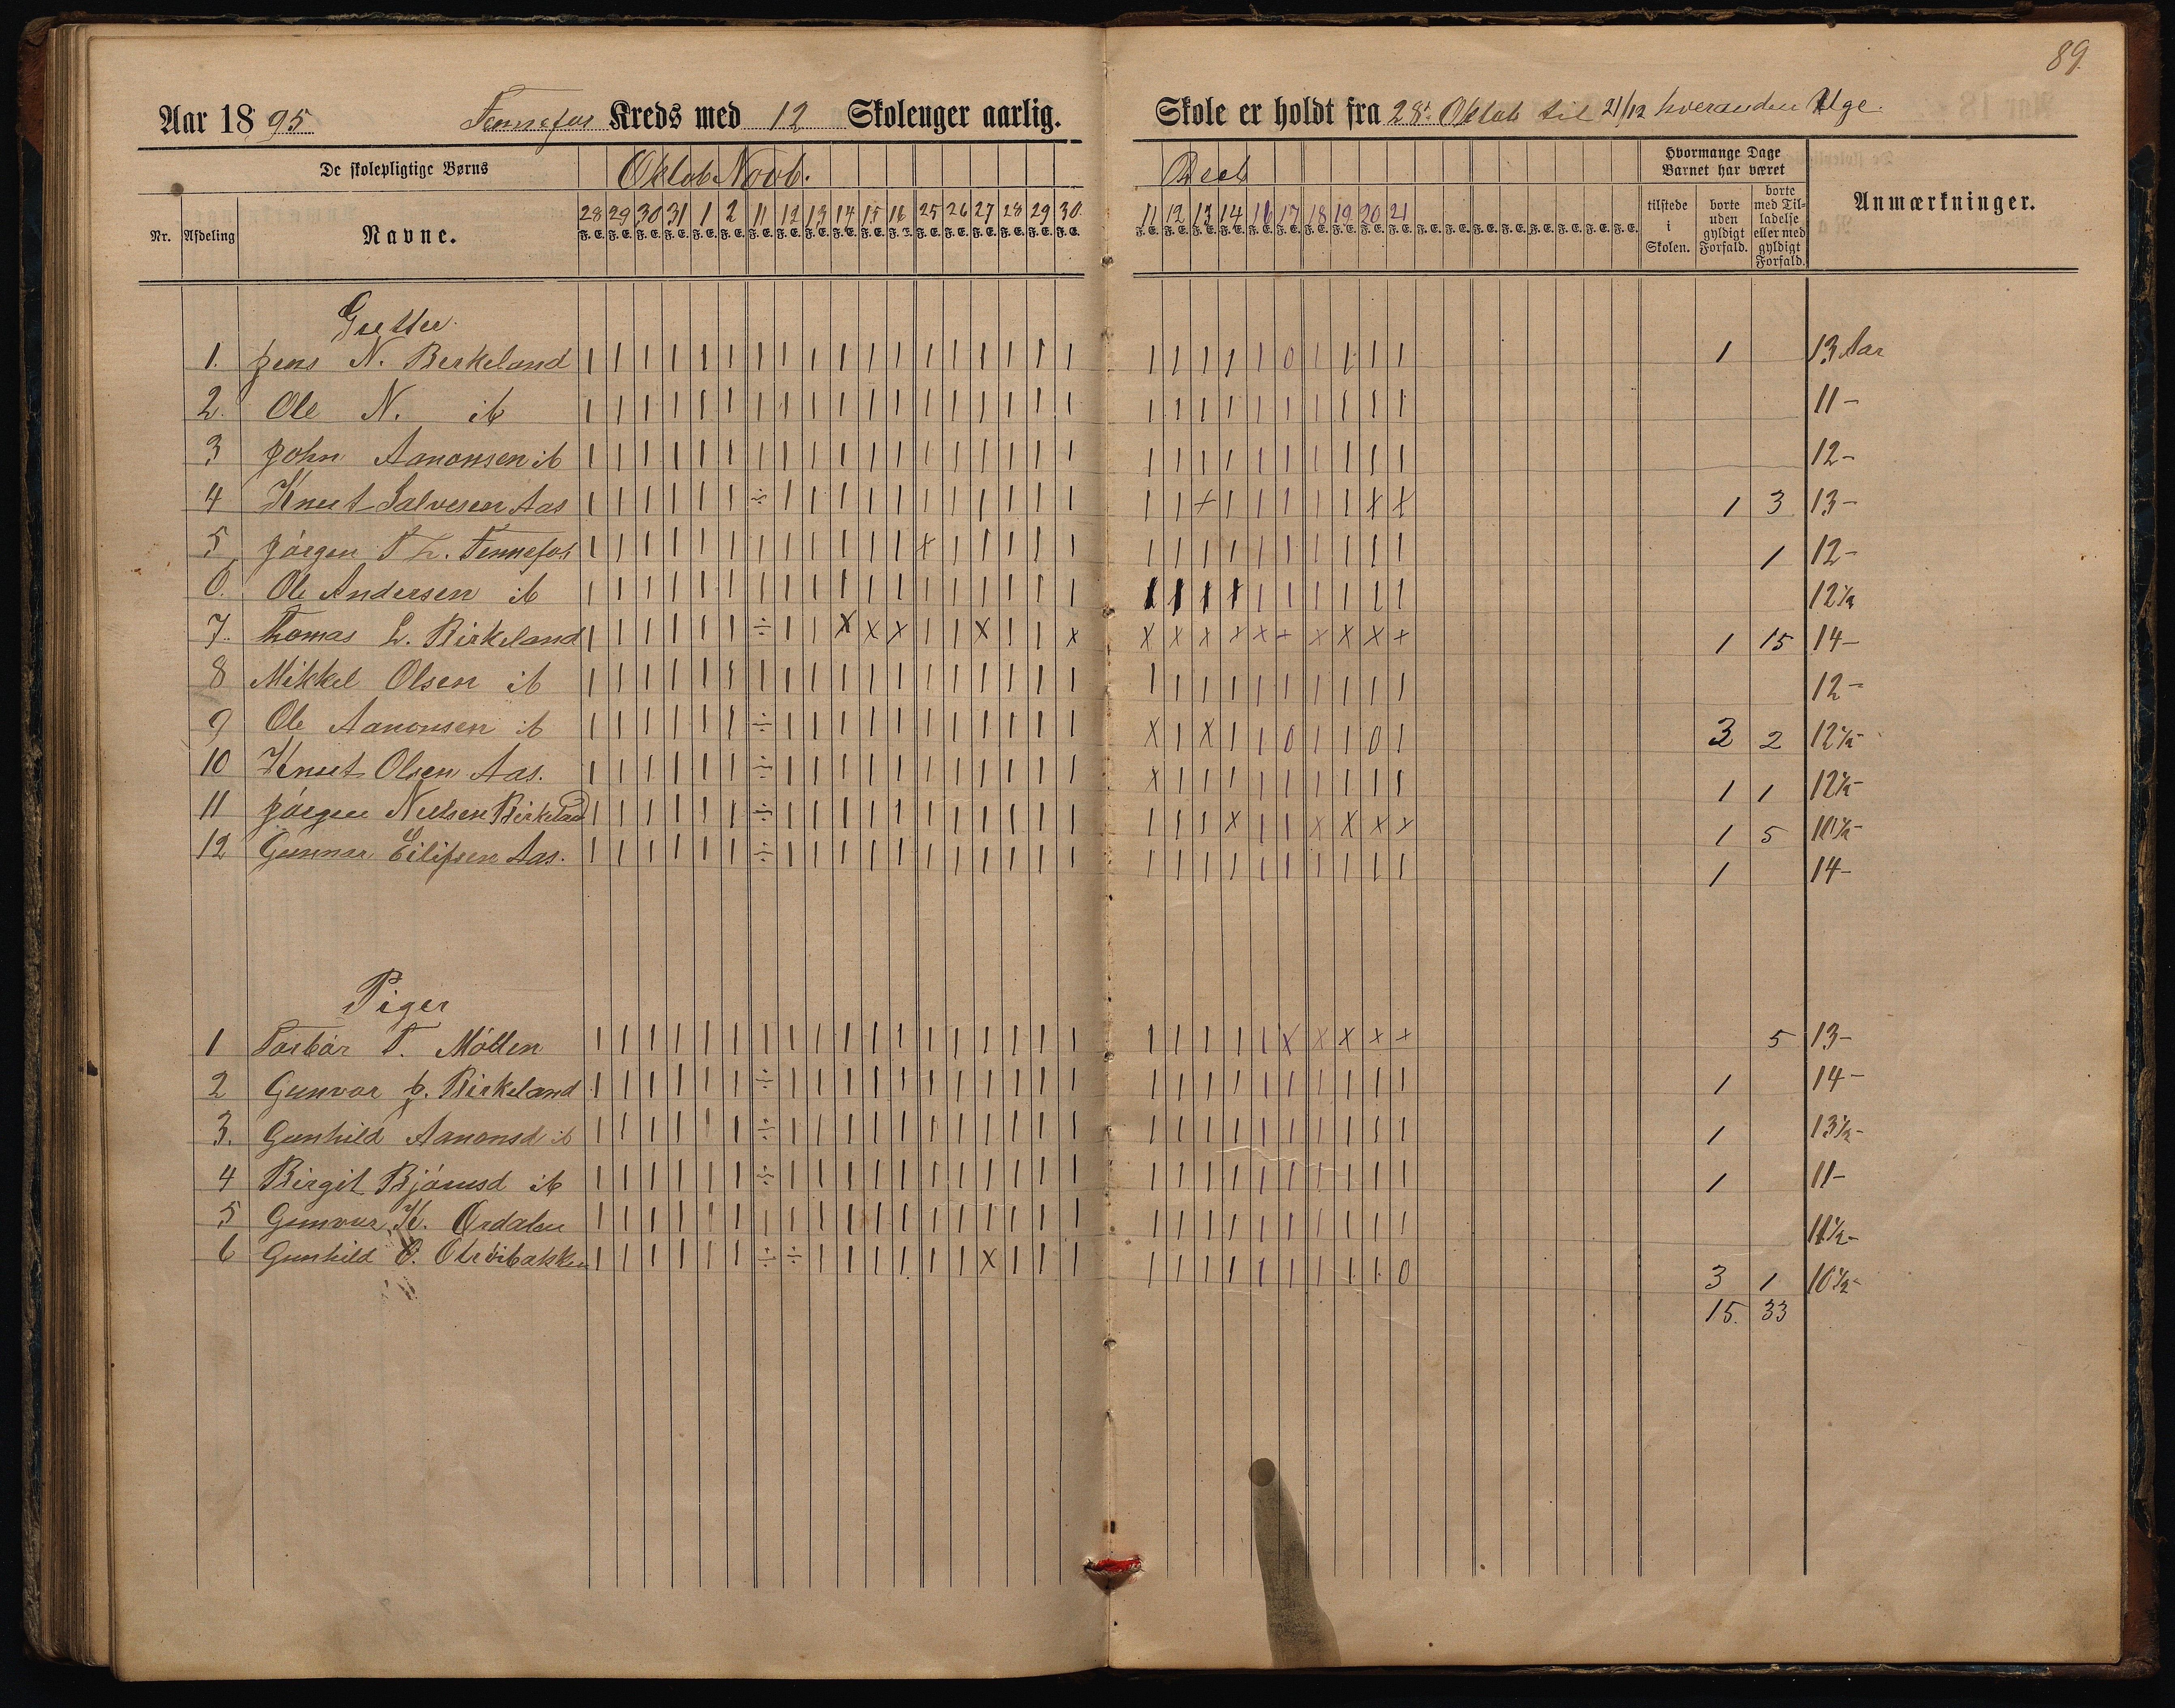 89.
Aar 1895 Fennefos Kreds med 12 Skoleuger aarlig.
Skole er holdt fra 28de Oktob til 21/12 hveranden Uge.
De skolepligtige Børns
Oktob. Novb.
Deeb
Hvormange Dage Barnet har været
Anmærkninger.
Nr. Afdeling Navne.
28 29 30 31 1 2 11 12 13 14 15 16 25 26 27 28 29 30.
11 12 13 14 16 17 18 19 20 21
F. E. F. E. F. E. F. E. F. E. F. E. F. E. F. E. F. E. F. E. F. E. F. E. F. E. F. E. F. E. F. E. F. E. F. E.
F. E. F. E. F. E. F. E. F. E. F. E. F. E. F. E. F. E. F. E. F. E. F. E. F. E. F. E. F. E. F. E. F. E. F. E.
tilstede i Skolen.
borte uden gyldigt Forfald.
borte med Tilladelse eller med gyldigt Forfald.
Gutter.
1. Jens N. Berkeland | | | | | | | | | | | | | | | | | | | | | | | 0 | | | | 1 13 Aar
2. Ole N. ib | | | | | | | | | | | | | | | | | | | | | | | | | | | | 11 -
3 John Aanonsen ib | | | | | | | | | | | | | | | | | | | | | | | | | | | | 12 -
4 Knut Salvesen Aas | | | | | | ÷ | | | | | | | | | | | | | + | | | | | x x 1 3 13 -
5 Jörgen T L. Fennefos | | | | | | | | | | | | x | | | | | | | | | | | | | | | 1 12 -
6. Ole Andersen ib | | | | | | | | | | | | | | | | | | | | | | | | | | | | 12½
7. Thomas L. Birkeland | | | | | | ÷ | | x x x | | x | | x x x x x x + x x x + 1 15 14 -
8 Mikkel Olsen ib | | | | | | | | | | | | | | | | | | | | | | | | | | | | 12 -
9 Ole Aanonsen ib | | | | | | ÷ | | | | | | | | | | | x | x | | 0 | | 0 | 3 2 12½ -
10 Knut Olsen Aas. | | | | | | ÷ | | | | | | | | | | | x | | | | | | | | | 1 1 12½ -
11 Jörgen Nielsen Birkeland | | | | | | ÷ | | | | | | | | | | | | | | x | | x x x x 1 5 10½ -
12 Gunnar Eilifsen Aas. | | | | | | ÷ | | | | | | | | | | | | | | | | | | | | | 1 14 -
Piger
1 Torbör T. Möllen | | | | | | | | | | | | | | | | | | | | | | | x x x x + 5 13 -
2 Gunvor J. Birkeland | | | | | | ÷ | | | | | | | | | | | | | | | | | | | | | 1 14 -
3. Gunhild Aanonsd ib | | | | | | ÷ | | | | | | | | | | | | | | | | | | | | | 1 13½ -
4 Birgit Björnsd ib | | | | | | ÷ | | | | | | | | | | | | | | | | | | | | | 1 11 -
5 Gunvor K. Ordalen | | | | | | | | | | | | | | | | | | | | | | | | | | | | 11½ -
6 Gunhild O. | | | | | | ÷ ÷ | | | | | | x | | | | | | | | | | | | 0 3 1 10½ -
15. 33